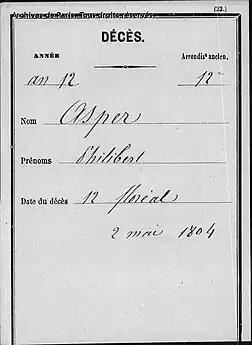 (23.)
Archives de Paris. Tous droits réservés.
DÉCÈS.
ANNÉE Arrondis^t ancien.
an 12 12^e
Nom Asper
Prénoms Philibert
Date du décès 12 floréal
2 mai 1804